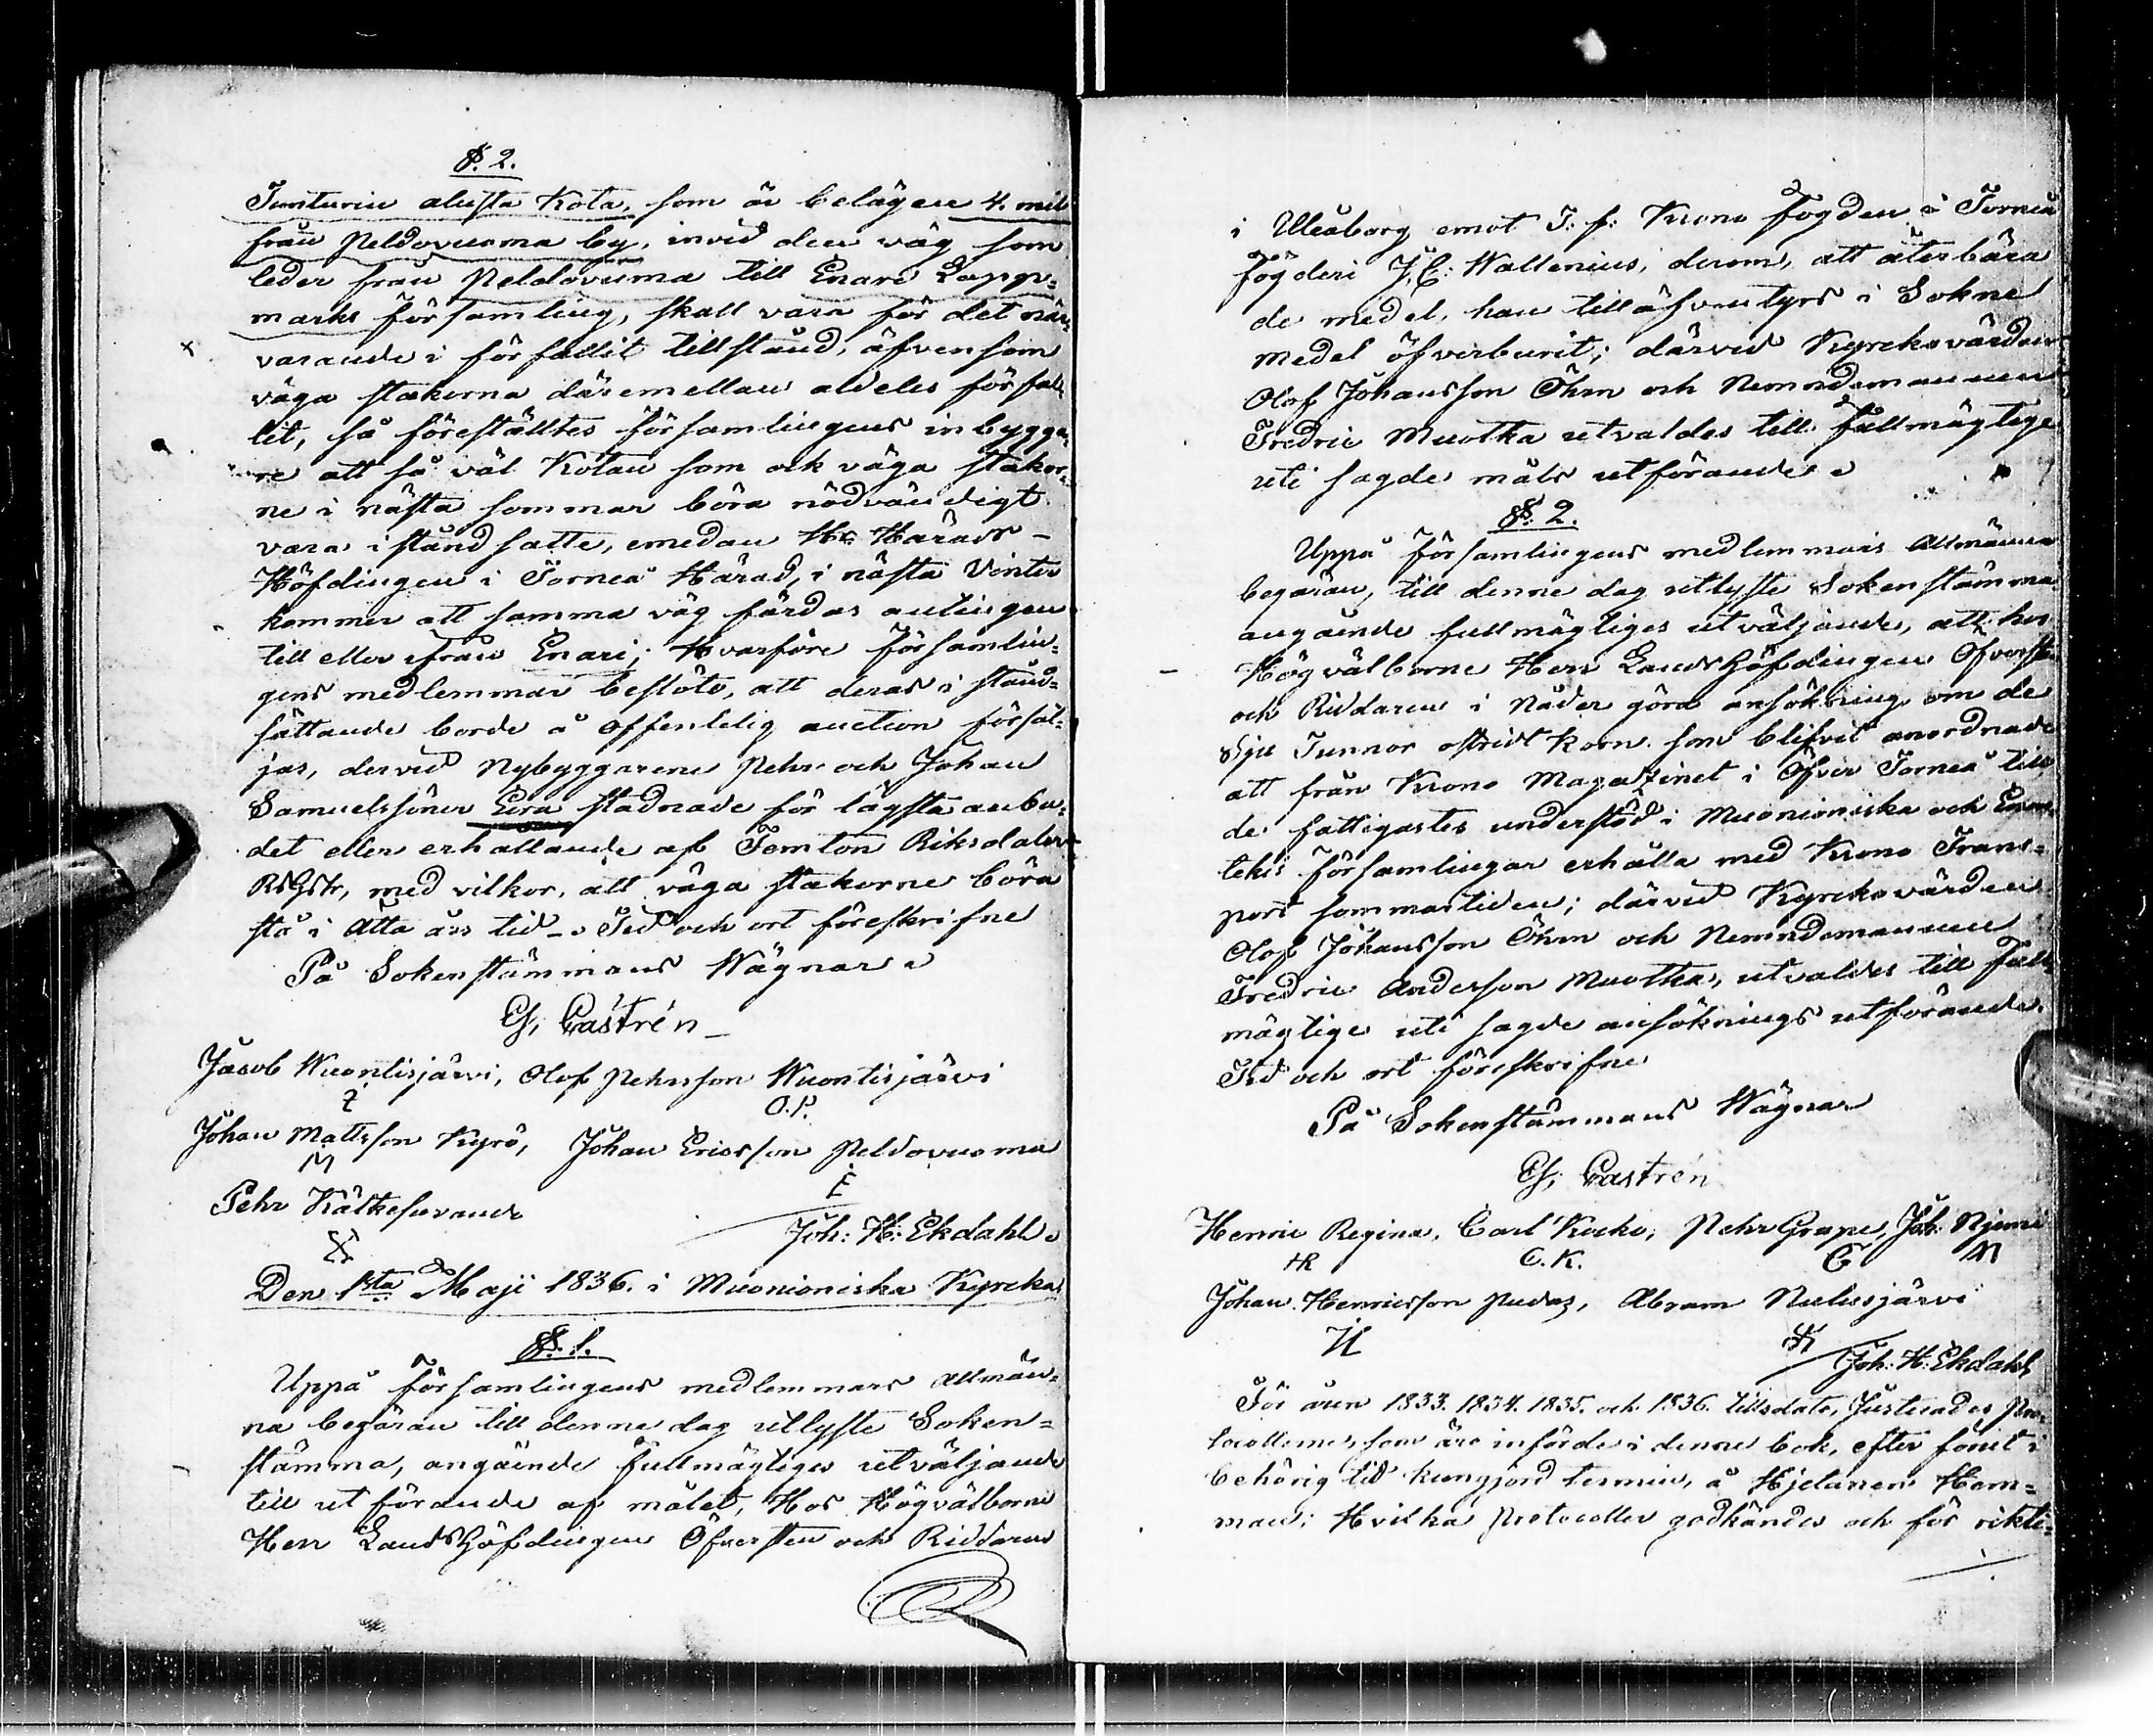 §. 2.
Tunturin alusta Kota, som är belägen 4. mil
från Peldovuoma by, invid den väg som
leder från Peldovuoma till Enare Lapp=
marks församling, skall vara för det när=
varande i förfallit tillstånd, äfvensom
våga stakorna däremellan aldeles förfal=
lit, så föreställtes församlingens inbygga=
re att så väl Kotan som ock våga stakor=
ne i nästa sommar böra nödvändigt
vara i stånd satte, emedan Hr Härads-
Höfdingen i Torneå Härad, i nästa Vinter
kommer att samma väg färdas antingen
till eller ifrån Enari; Hvarföre församlin=
gens medlemmar beslöto, att deras i stånd=
sättande borde å offentelig auction försäl=
jas, dervid Nybyggarene Pehr och Johan
Samuelssöner Eira stadnade för lägsta anbu=
det eller erhållande af Femton Riksdaler
RGStr, med vilkor, att våga stakorne böra
stå i åtta års tid - Tid och ort föreskrifne
På Sokenstämmans Wägnar
Es; Castrén
Jacob Wuontisjärvi, Olof Pehrsson Wuontisjärvi
O.P.
Johan Mattsson Kyrö, Johan Ericsson Peldovuoma
M E
Pehr Kätkesuvando
Joh: H: Ekdahl
Den 1sta Maji 1836. i Muonioniska Kyrcka
§. 1.
Uppå församlingens medlemmars allmän=
na begäran till denne dag utlyste Soken=
stämma, angående fullmägtiges utväljande
till utförande af målet, Hos Högvälborne
Herr LandsHöfdingen Öfversten och Riddaren
i Uleåborg emot T. f. Krono Fogden i Torneå
Fögderi J. C: Wallenius, derom, att återbära
de medel, han till äfventyrs i Sokne
medel öfverburit; därvid Kyrckovärden
Olof Johansson Öhm och Nemndemannen
Fredric Muotka utvaldes till fullmägtige
uti sagde måls utförande
§. 2.
Uppå församlingens medlemmars allmänna
begäran, till denne dag utlyste Sokenstämma
angående fullmägtiges utväljande, att hos
Högvälborne Herr LandsHöfdingen Öfversten
och Riddaren i Nåder göra ansökning om de
Sju Tunnor ostridt Korn som blifvit anordnade
att från Krono Magazinet i Öfver Torneå till
de fattigastes understöd i Muonioniska och Enon=
tekis församlingar erhålla med Krono Trans=
port sommartiden; därvid Kyrckovärden
Olof Johansson Öhm och Nemndemannen
Fredric Anderson Muotka, utvaldes till full=
mägtige uti sagde ansöknings utförande.
Tid och ort föreskrifne
På Sokenstämmans Wägnar
Es; Castrén
Henric Regina, Carl Kocko, Pehr Grape, Joh: Njemi
HR C.K. G M
Johan Henricsson Pudas, Abram Nulusjärvi
H
Joh: H: Ekdahl
För åren 1833. 1834. 1835. och 1836. tills dato, Justerades Pro=
tocollerne, som äro införde i denne bok, efter förut i
behörig tid kungjord termin, å Hjetanen Hem=
man; Hvilka Protocoller godkändes och för rikti=